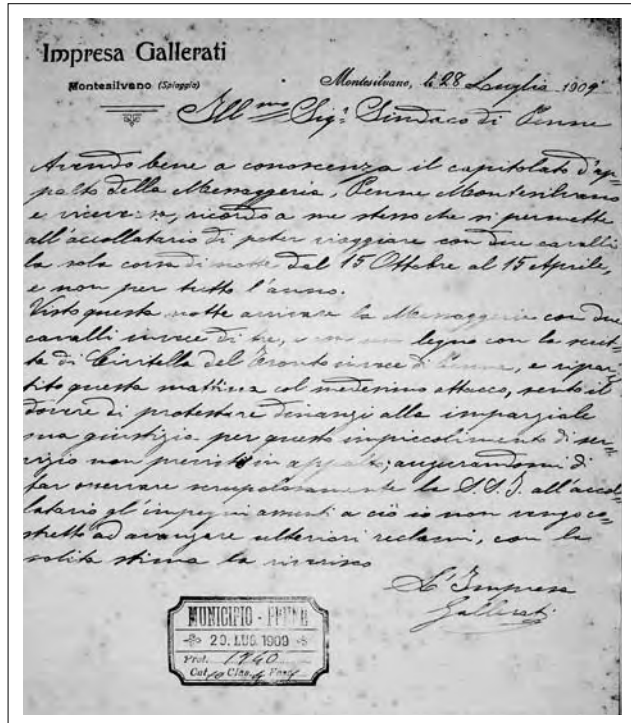 Impresa Gallerati
Montesilvano (Spiaggia)
Montesilvano, li 28 Luglio 1909
Ill.mo Sig.r Sindaco di Penne
Avendo bene a conoscenza il capitolato d'ap=
palto della Messaggeria, Penne Montesilvano
e viceversa, ricordo a me stesso che si permette
all'accollatario di poter viaggiare con due cavalli
la sola corsa di notte dal 15 Ottobre al 15 Aprile,
e non per tutto l'anno.
Visto questa notte arrivare la Messaggeria con due
cavalli invece di tre, e con un legno con la scrit=
ta di Civitella del Tronto invece di Penne, e ripar=
tito questa mattina col medesimo attacco, sento il
dovere di protestare dinanzi alla imparziale
sua giustizia per questo impiccolimento di ser=
vizio non previsto in appalto; augurandomi di
far osservare scrupolosamente la S.S.I. all'accol=
latario gl'impegni a ciò io non venga co=
stretto ad avanzare ulteriori reclami, con la
solita stima la riverisco
L'Impresa
Gallerati
MUNICIPIO - PENNE
29. LUG. 1909
Prot. 1960
Cat. 10 Clas. 4 Fasc.